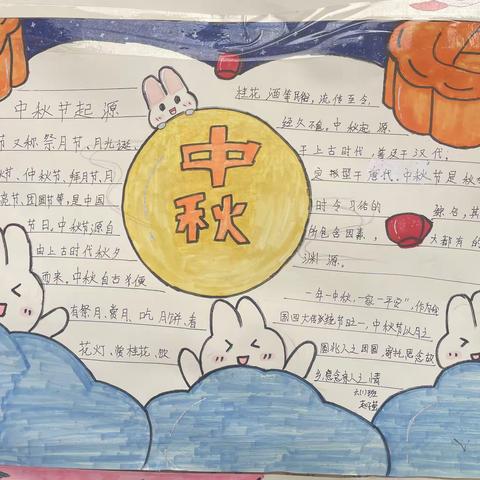 中秋节起源
节又称祭月节、月光诞、
秋节、仲秋节、拜月节、月
亮节、团圆节等,是中国
节日。中秋节源自
由上古时代秋夕
而来。中秋自古便
有祭月、赏月、吃月饼、看
花灯、赏桂花、饮
中
秋
桂花酒等民俗,流传至今,
经久不息。中秋起源
于上古时代,普及于汉代,
定型于唐代。中秋节是秋
时令习俗的
综合,其
所包含因素,
大都有
渊源。
一年一中秋,一家一平安",作为
国四大传统节日之一,中秋节以月之
圆兆人之团圆,寄托思念故
乡,思念亲人之情